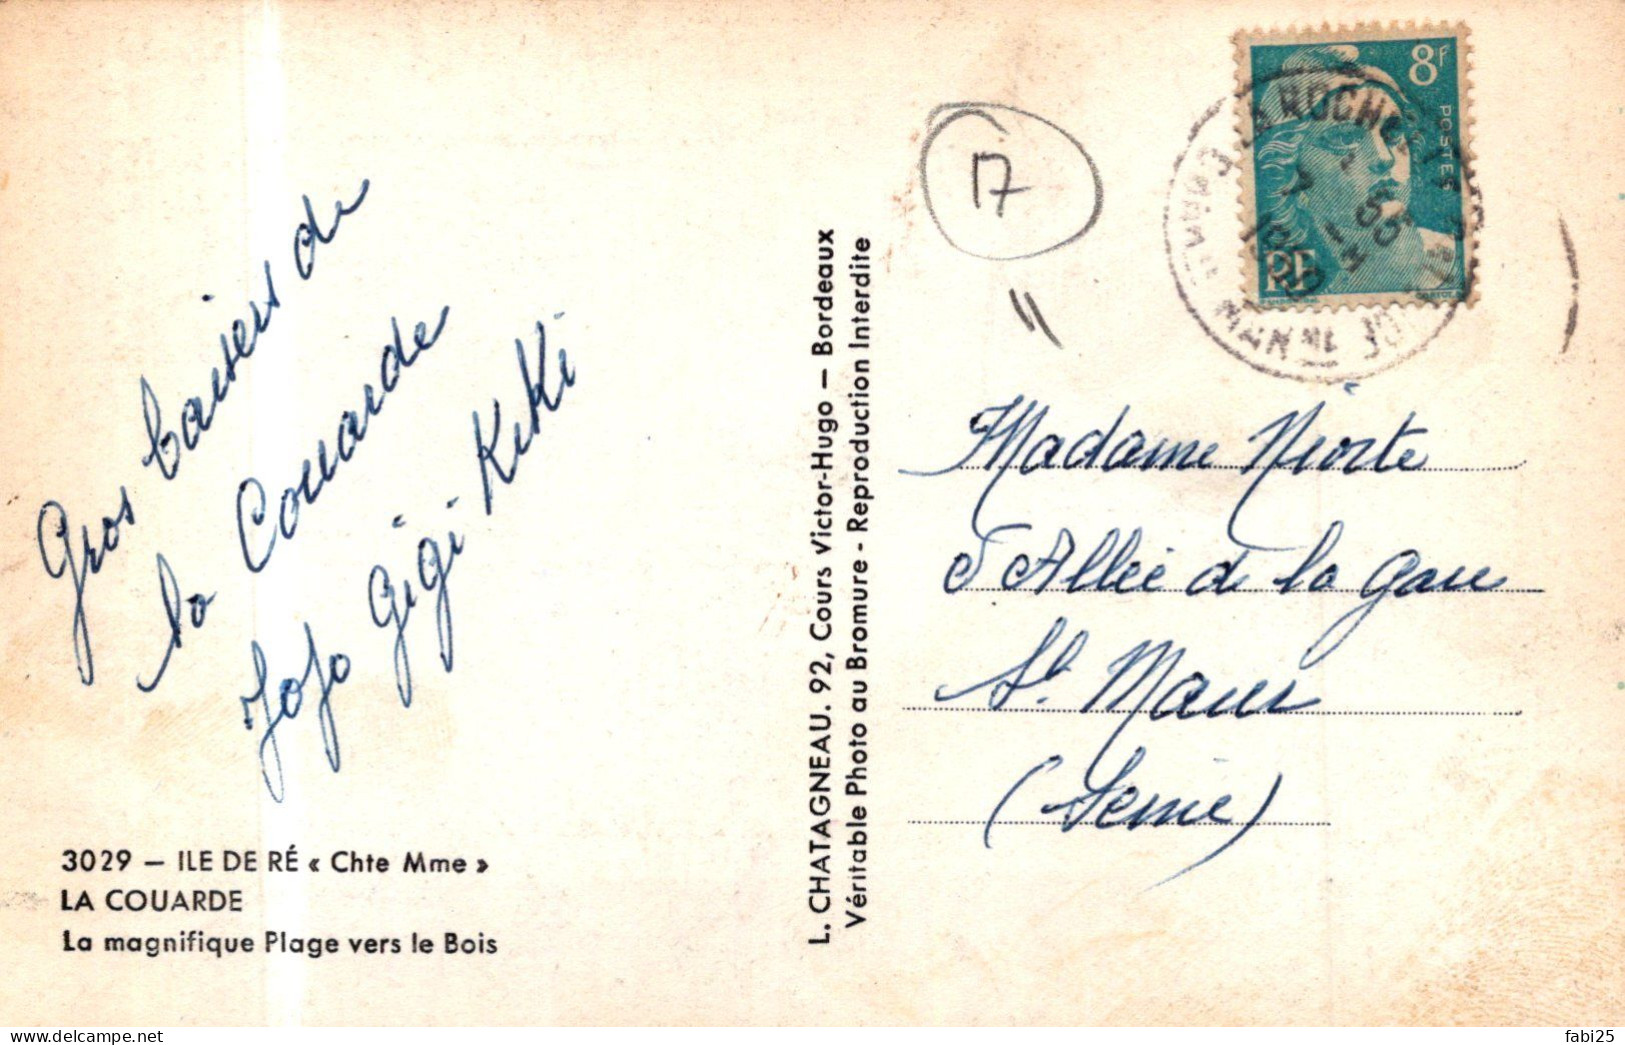 Gros baisers de
la Couarde
Jojo Gigi Kiki
3029 — ILE DE RÉ « Chte Mme »
LA COUARDE
La magnifique Plage vers le Bois
L. CHATAGNEAU. 92, Cours Victor-Hugo — Bordeaux
Véritable Photo au Bromure - Reproduction Interdite
17
8F
POSTES
RF
Madame Niorte
5 Allée de la Gare
St. Maur
(Seine)
fabi25